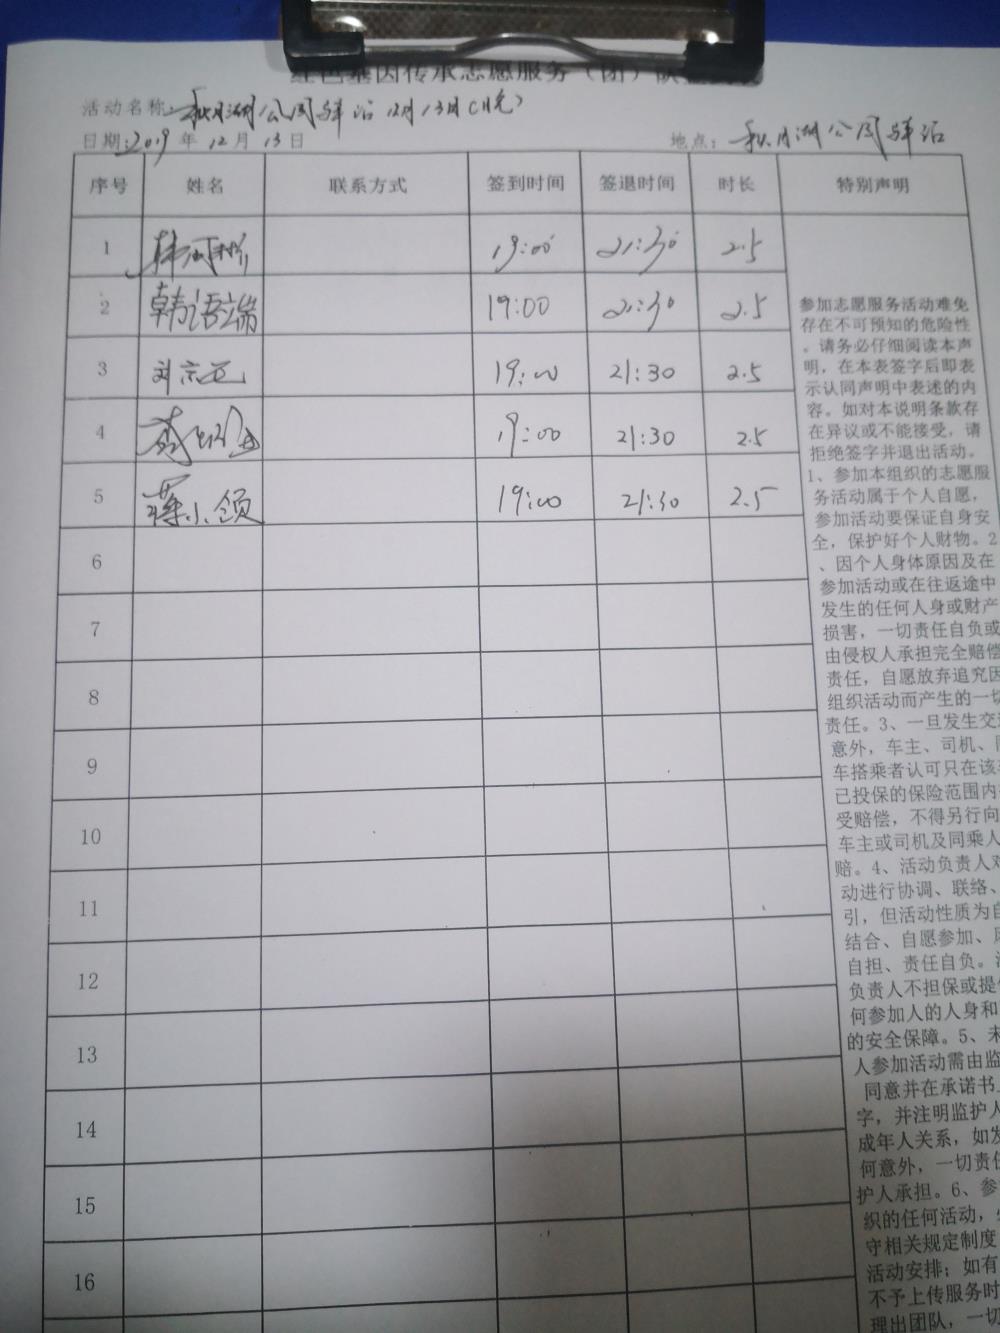 红色基因传承志愿服务（团）队
活动名称：秋月湖公园驿站 12月13日（晚）
日期：2019 年 12 月 13 日 地点：秋月湖公园驿站
序号 姓名 联系方式 签到时间 签退时间 时长 特别声明
1 19:00 21:30 2.5
2 韩语端 19:00 21:30 2.5
3 刘宗 19:00 21:30 2.5
4 19:00 21:30 2.5
5 蒋小领 19:00 21:30 2.5
6
7
8
9
10
11
12
13
14
15
16
参加志愿服务活动难免
存在不可预知的危险性
。请务必仔细阅读本声
明，在本表签字后即表
示认同声明中表述的内
容。如对本说明条款存
在异议或不能接受，请
拒绝签字并退出活动。
1、参加本组织的志愿服
务活动属于个人自愿，
参加活动要保证自身安
全，保护好个人财物。2
、因个人身体原因及在
参加活动或在往返途中
发生的任何人身或财产
损害，一切责任自负或
由侵权人承担完全赔偿
责任，自愿放弃追究因
组织活动而产生的一切
责任。3、一旦发生交
意外，车主、司机、同
车搭乘者认可只在该
已投保的保险范围内
受赔偿，不得另行向
车主或司机及同乘人
赔。4、活动负责人对
动进行协调、联络、
引，但活动性质为自
结合、自愿参加、风
自担、责任自负。活
负责人不担保或提
何参加人的人身和
的安全保障。5、未
人参加活动需由监
同意并在承诺书
字，并注明监护人
成年人关系，如发
何意外，一切责任
护人承担。6、参
织的任何活动，
守相关规定制度
活动安排；如有
不予上传服务时
理出团队，一切